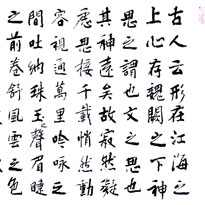 古人云形在江海之
上心存魏闕之下神
思之謂也文之思也
其神遠矣故寂然凝
慮思接千載悄然動
容視通萬里吟詠之
間吐納珠玉之聲眉睫
之前卷舒風雲之色